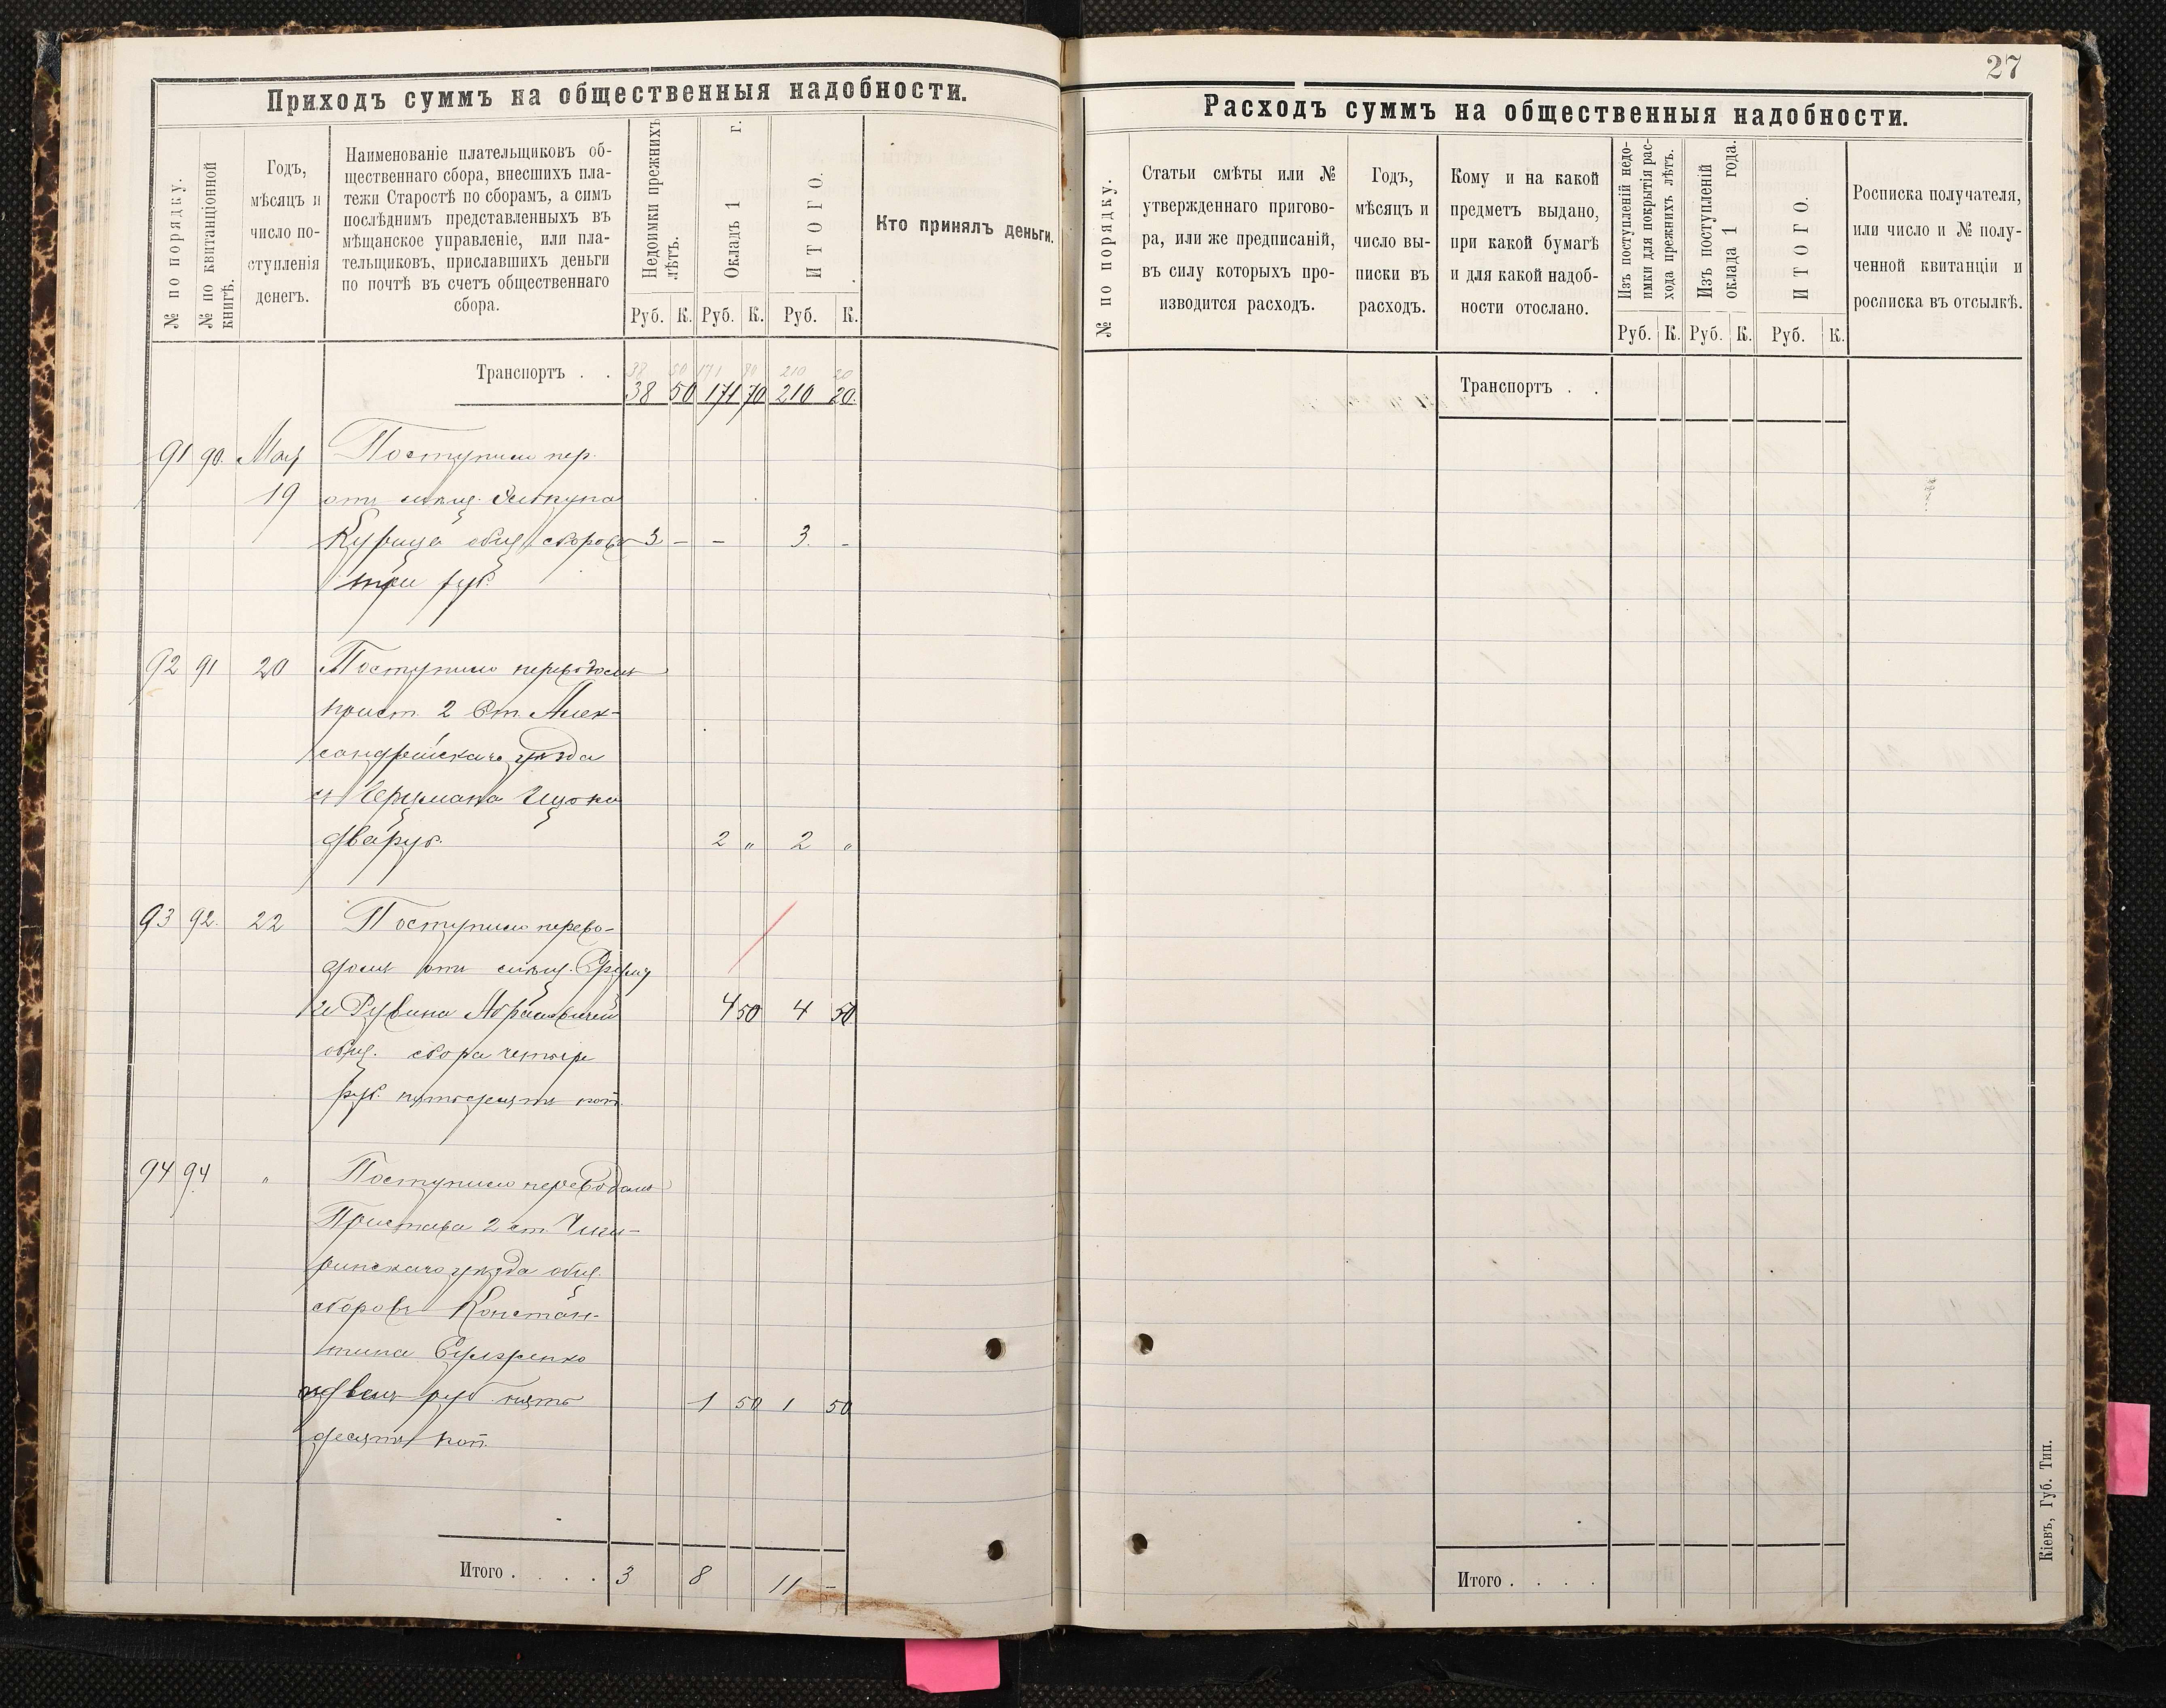 Приходъ суммъ на общественныя надобности.
№ по порядку.
№ по квитанціонной
книгѣ.
Годъ,
мѣсяцъ и
число по-
ступленія
денегъ.
Наименованіе плательщиковъ об-
щественнаго сбора, внесшихъ пла-
тежи Старостѣ по сборамъ, а симъ
послѣднимъ представленныхъ въ
мѣщанское управленіе, или пла-
тельщиковъ, приславшихъ деньги
по почтѣ въ счетъ общественнаго
сбора.
Недоимки прежнихъ
лѣтъ.
Окладъ 1 г.
ИТОГО.
Кто принялъ деньги.
Руб. К. Руб. К. Руб. К.
38 50 171 70 210 20
Транспортъ . . 38 50 171 70 210 20.
91 90. Мая Поступило пер.
19 отъ
общ. сборовъ 3 - - 3. -
три руб.
92 91 20 Поступило переводомъ
прист. 2 Ст. Алек-
сандрійскаго уѣзда
два руб. 2 " 2 "
93 92. 22 Поступило перево-
домъ отъ
и Рувина 4 50 4 50
общ. сбора четыре
руб. пятьдесятъ коп.
94 94 " Поступило переводомъ
Пристава 2 ст. Чиги-
ринскаго уѣзда общ.
сборовъ Констан-
тина
одинъ руб. пять- 1 50 1 50
десятъ коп.
Итого . . . . 3 8 11 -
27
Расходъ суммъ на общественныя надобности.
№ по порядку.
Статьи смѣты или №
утвержденнаго пригово-
ра, или же предписаній,
въ силу которыхъ про-
изводится расходъ.
Годъ,
мѣсяцъ и
число вы-
писки въ
расходъ.
Кому и на какой
предметъ выдано,
при какой бумагѣ
и для какой надоб-
ности отослано.
Изъ поступленій недо-
имки для покрытія рас-
хода прежнихъ лѣтъ.
Изъ поступленій
оклада 1 года.
ИТОГО.
Росписка получателя,
или число и № полу-
ченной квитанціи и
росписка въ отсылкѣ.
Руб. К. Руб. К. Руб. К.
Транспортъ . .
Итого . . . .
Кіевъ, Губ. Тип.